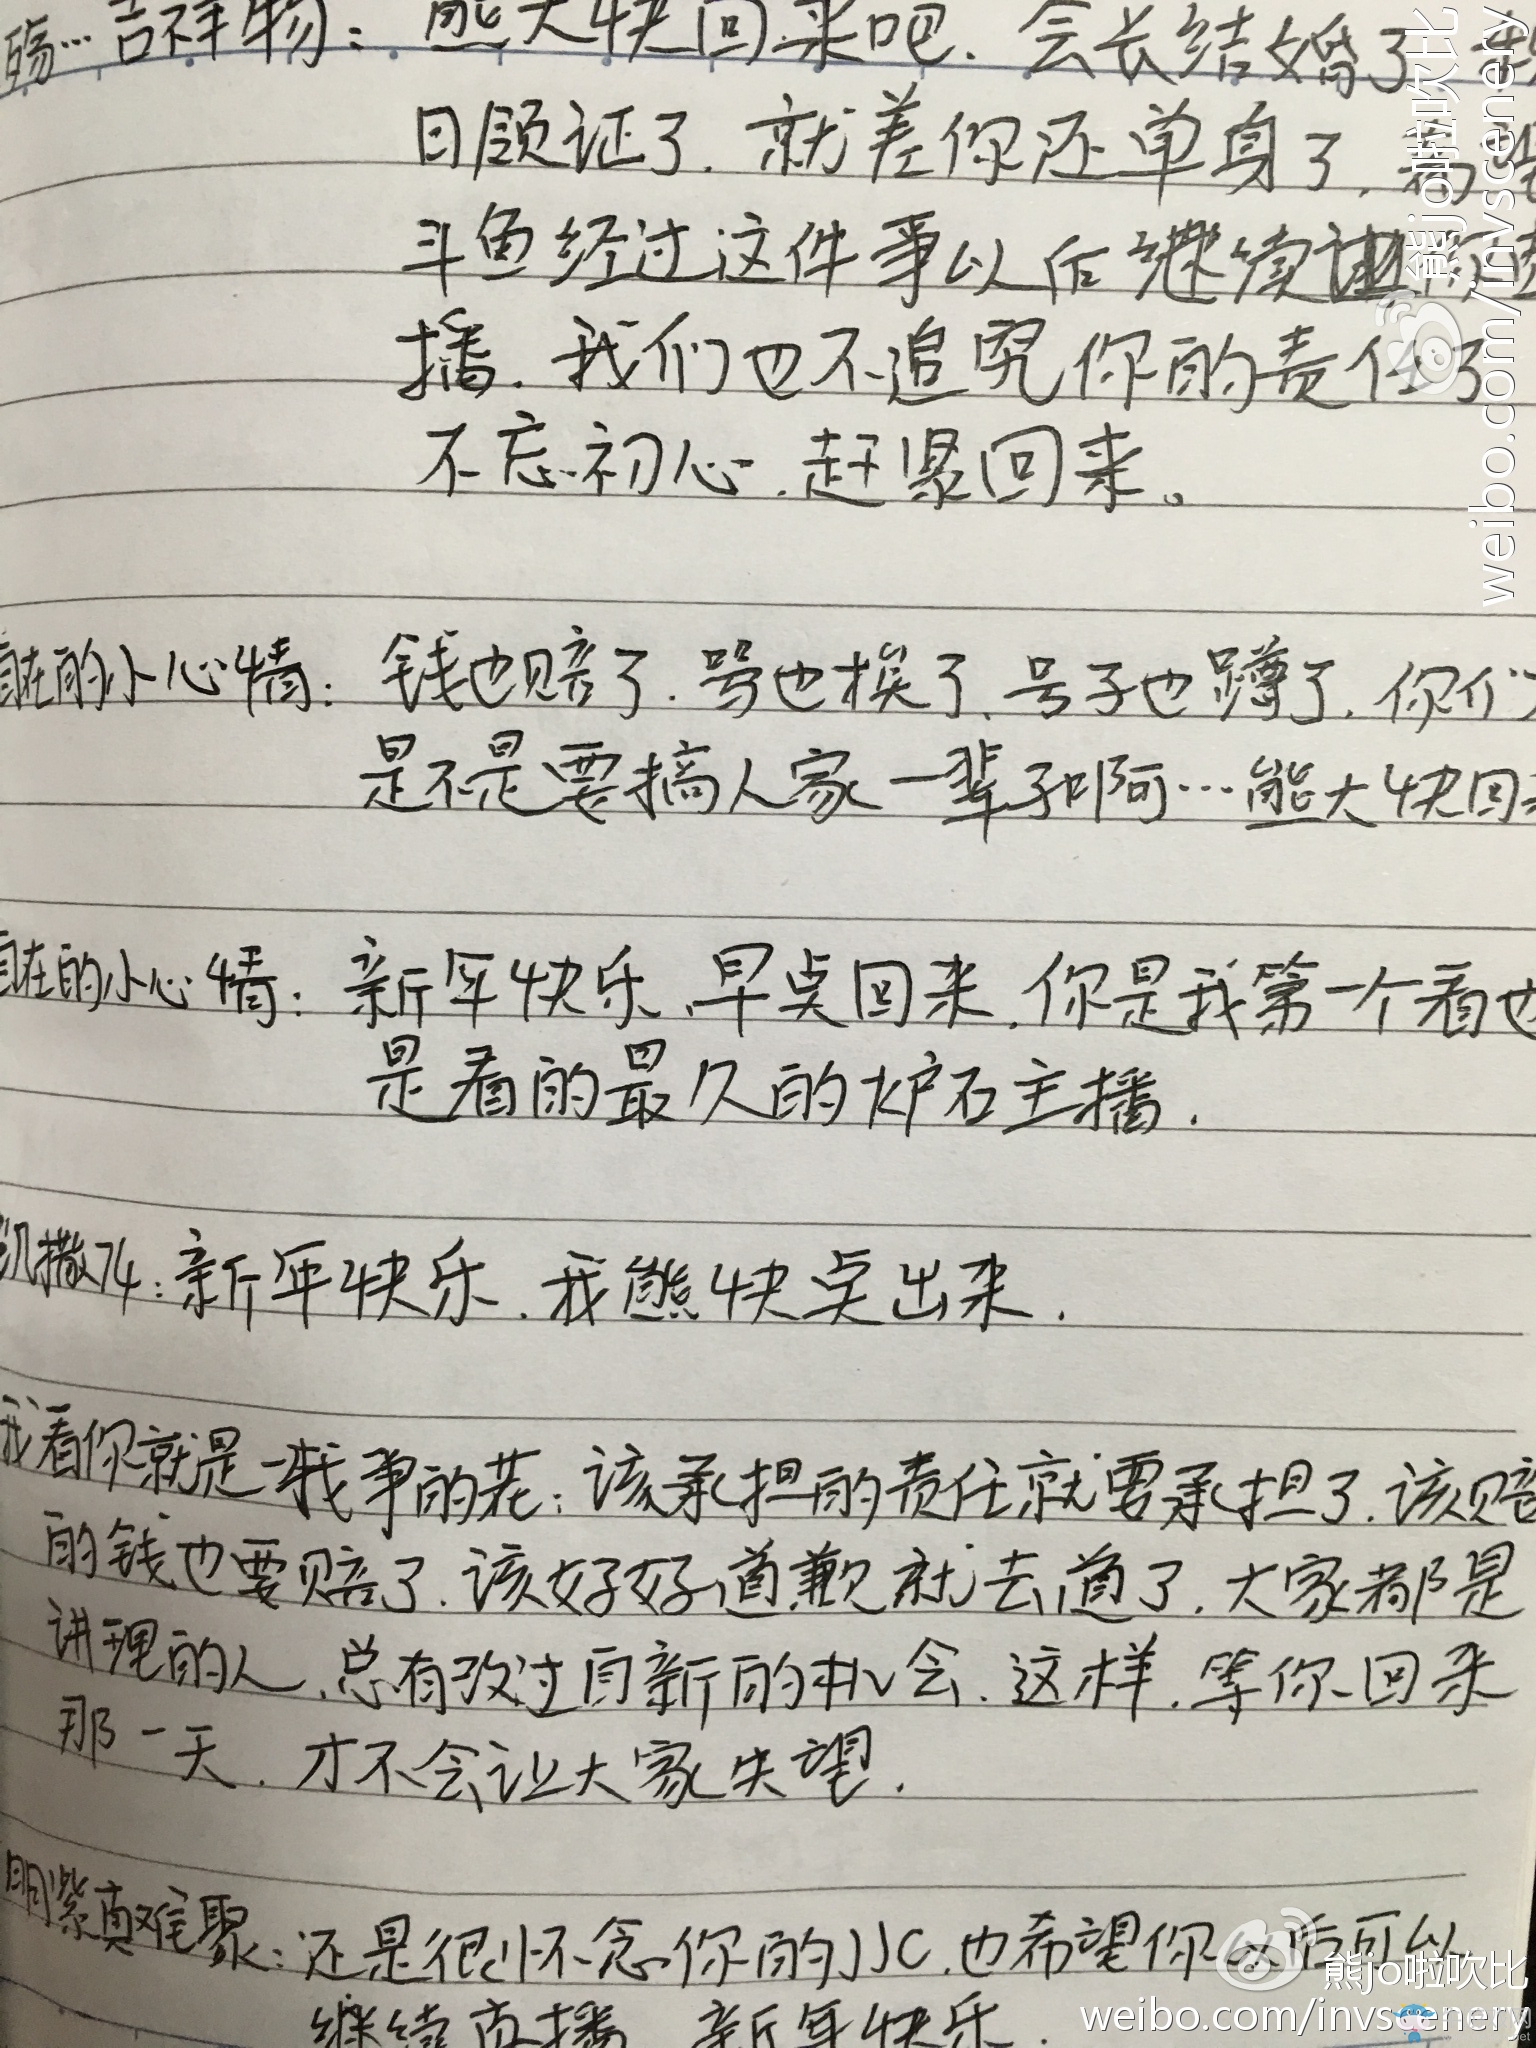 吉祥物：熊大快回来吧．会长结婚了
日领证了．就差你还单身了．
斗鱼经过这件事以后继续让你直
播．我们也不追究你的责任了
不忘初心．赶紧回来。
自在的小心情：钱也赔了．骂也挨了、号子也蹲了．你们
是不是要搞人家一辈子啊…熊大快回
自在的小心情：新年快乐、早点回来．你是我第一个看也
是看的最久的炉石主播．
撒74：新年快乐．我熊快点出来．
我看你就是我争的花：该承担的责任就要承担了．该赔
的钱也要赔了．该好好道歉就去道了．大家都是
讲理的人．总有改过自新的机会．这样．等你回来
那一天．才不会让大家失望．
明紫真难聚：还是很怀念你的JJC．也希望你以后可以
继续直播 新年快乐．
熊jo啦吹比
weibo.com/invscenery
熊jo啦吹比
weibo.com/invscenery